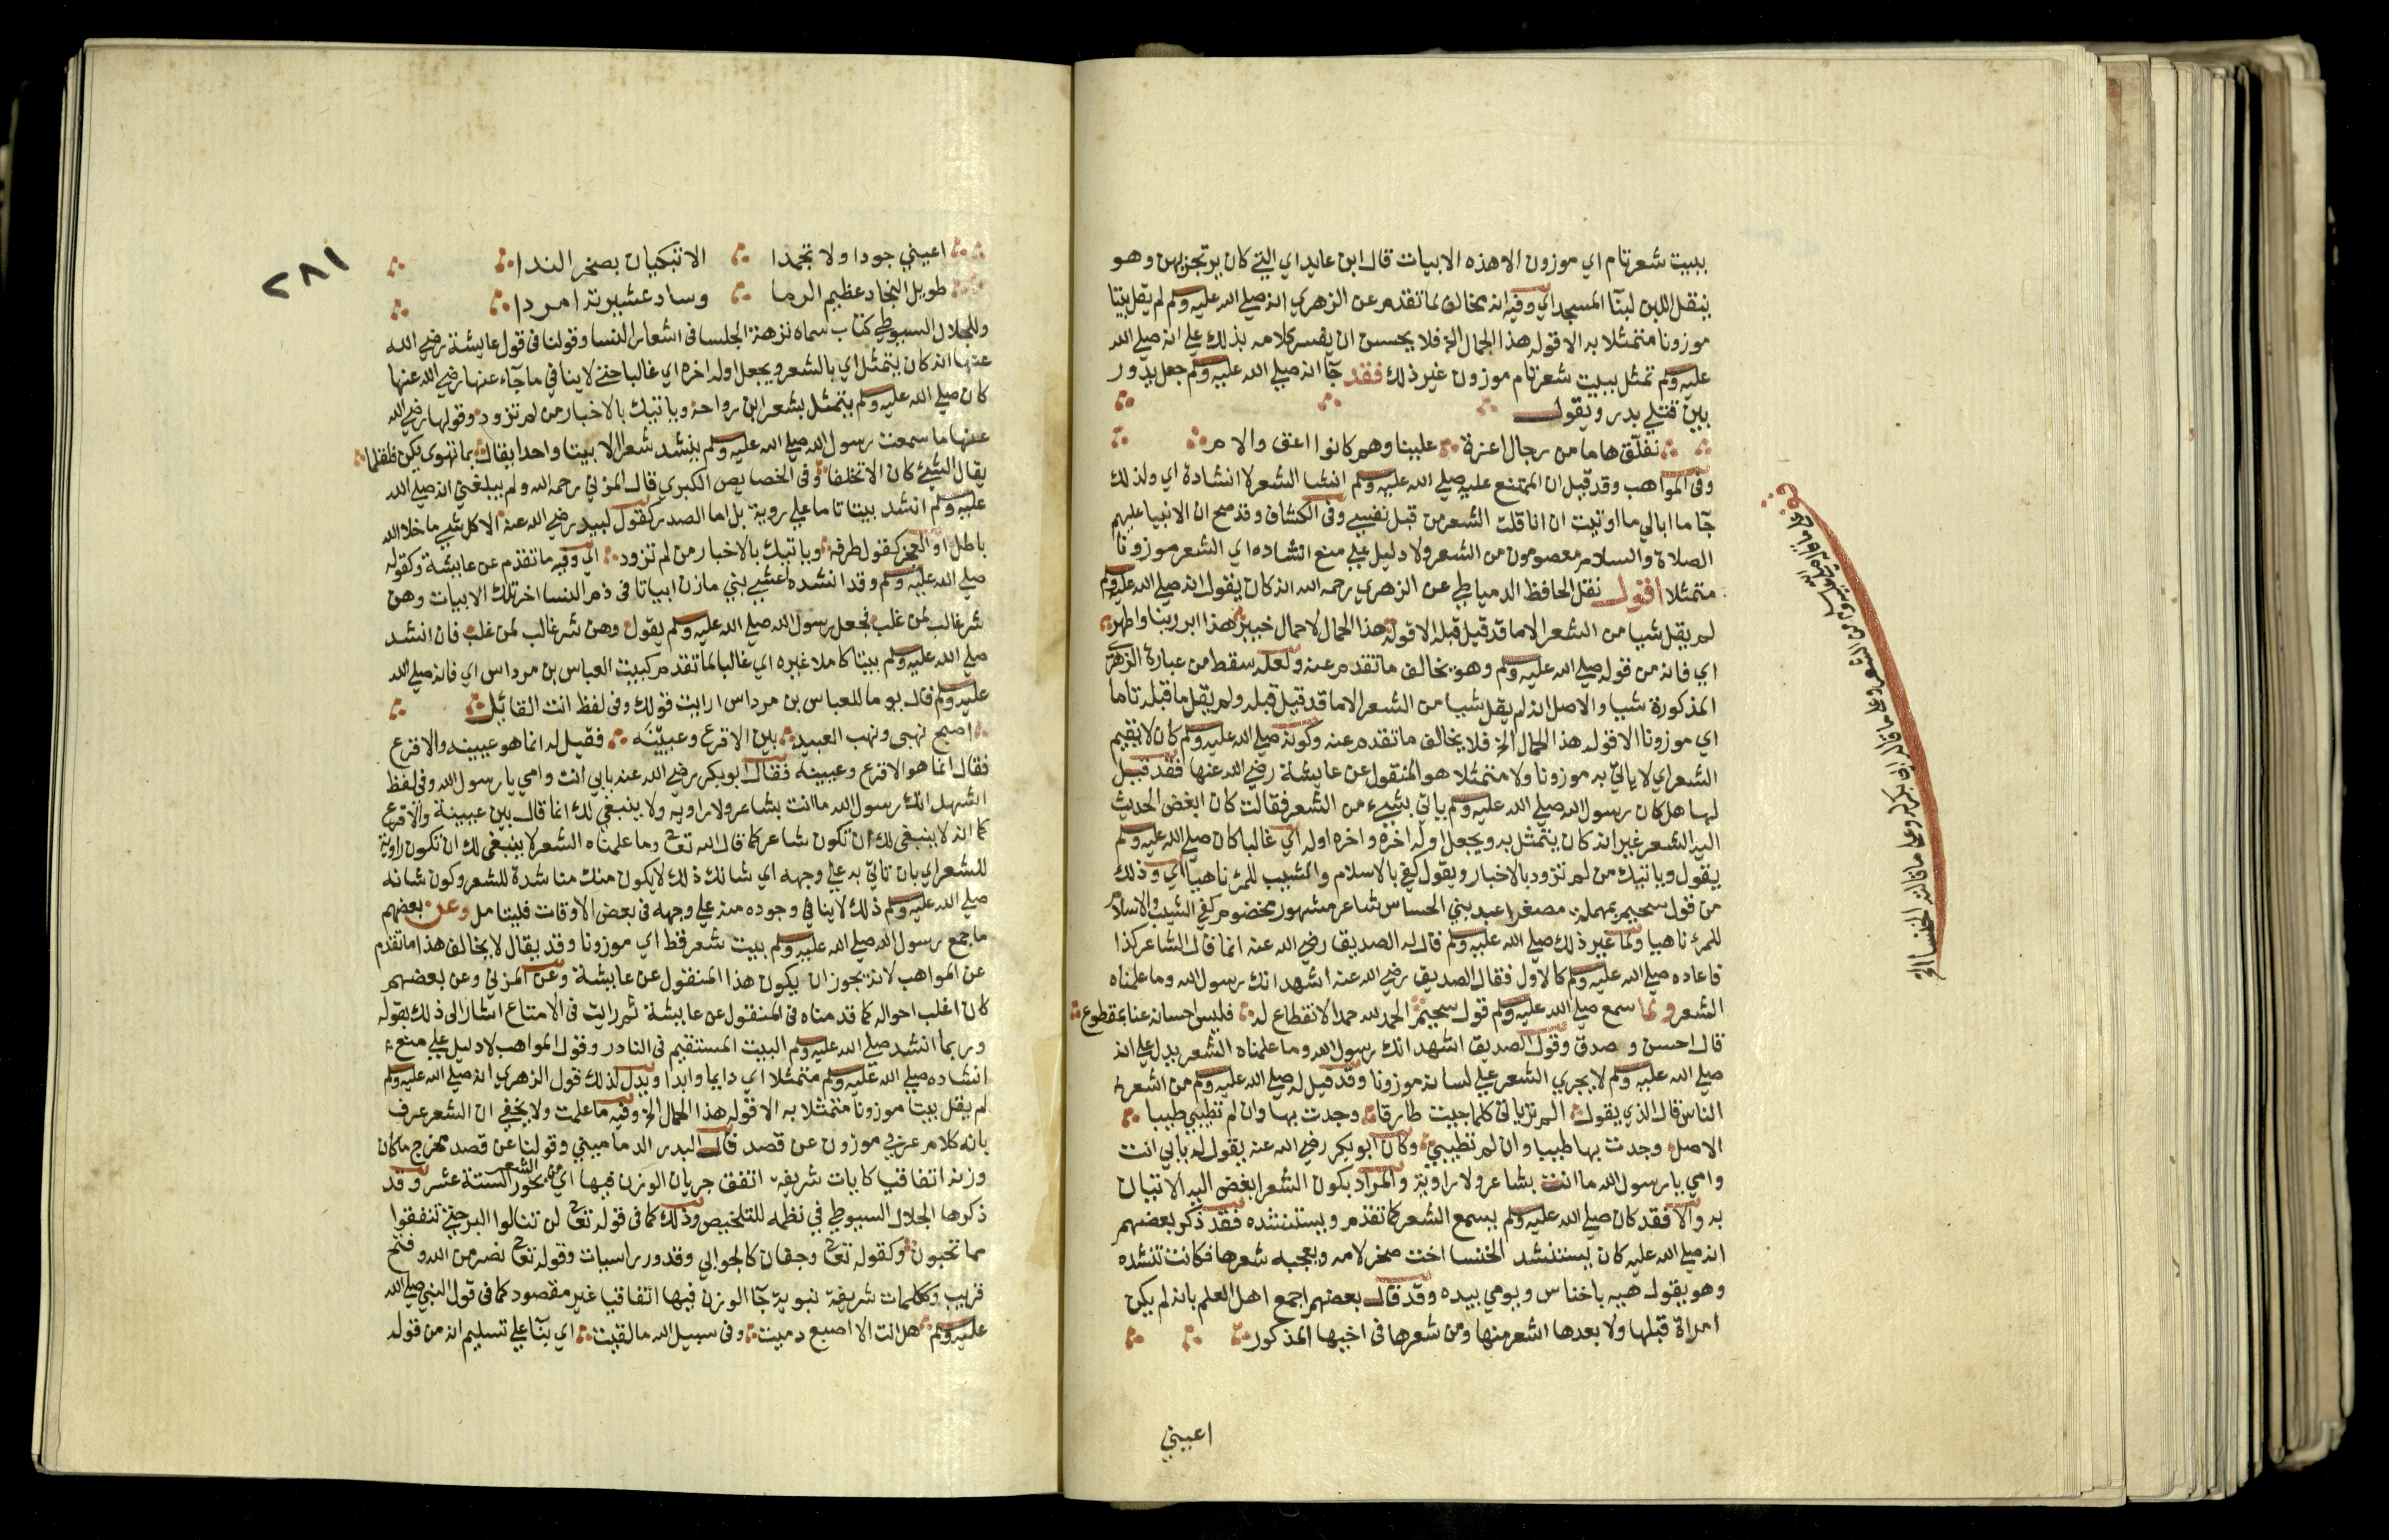 ببيت شعر تام اي موزون الا هذه الابيات قال ابن عايد اي التي كان يرتجز بهن وهو
ينقل اللبن لبنآ المسجد اي وفيه انه يخالف لما تقدم عن الزهري انه صلي الله عليه وسلم لم يقل بيتا
موزونا متمثلا به الا قوله هذا الجمال الخ فلا يحسن ان يفسر كلامه بذلك علي انه صلي الله
عليه وسلم تمثل ببيت شعر تام موزون غير ذلك فقد جآ انه صلي الله عليه وسلم جعل يدور
بين قتلي بدر ويقول
نفلّق هاما من رجال اعزة علينا وهم كانوا اعق والام
وفي المواهب وقد قيل ان الممتنع عليه صلي الله عليه وسلم انشا الشعر لا انشادة اي ولذلك
جآ ما ابالي ما اوتيت ان انا قلت الشعر من قبل نفسي وفي الكشاف وقد صح ان الانبيا عليهم
الصلاة والسلام معصومون من الشعر ولا دليل علي منع انشاده اي الشعر موزونا
متمثلا اقول نقل الحافظ الدمياطي عن الزهري رحمه الله انه كان يقول انه صلي الله عليه وسلم
لم يقل شيا من الشعر الا ما قد قيل قبله الا قوله هذا الحمال لا حمال خيبر هذا ابر ربنا واطهر
اي فانه من قوله صلي الله عليه وسلم وهو يخالف ما تقدم عنه ولعله سقط من عبارة الزهري
المذكورة شيا والاصل انه لم يقل شيا من الشعر الا ما قد قيل قبله ولم يقل ما قبله تاما
اي موزونا الا قوله هذا الحمال الخ فلا يخالف ما تقدم عنه وكونه صلي الله عليه وسلم كان لا يقيم
الشعر اي لا ياتي به موزونا ولا متمثلا هو المنقول عن عايشة رضي الله عنها فقد قيل
لها هل كان رسول الله صلي الله عليه وسلم ياتي بشيء من الشعر فقالت كان ابغض الحديث
اليه الشعر غير انه كان يتمثل به ويجعل اوله اخره واخره اوله اي غالبا كان صلي الله عليه وسلم
يقول وياتيك من لم تزود بالاخبار ويقول كفي بالاسلام والشيب للمرء ناهيا اي وذلك
من قول سحيم بمهملة مصغرا عبد بني الحسحاس شاعر مشهور مخضرم كفي الشيب والاسلام
للمرء ناهيا ولما غير ذلك صلي الله عليه وسلم قال له الصديق رضي الله عنه انما قال الشاعر كذا
فاعاده صلي الله عليه وسلم كالاول فقال الصديق رضي الله عنه اشهد انك رسول الله وما علمناه
الشعر ولما سمع صلي الله عليه وسلم قول سحيم الحمد لله حمدا لا انقطاع له فليس احسانه عنا بمقطوع
قال احسن وصدق وقول الصديق اشهد انك رسول الله وما علمناه الشعر يدل علي انه
صلي الله عليه وسلم لا يجري الشعر علي لسانه موزونا وقد قيل له صلي الله عليه وسلم من اشعر
الناس قال الذي يقول الم ترياني كلما جيت طارقا وجدت بها وان لم تطيبي طيبا
الاصل وجدت بها طيبا وان لم تطيبي وكان ابو بكر رضي الله عنه يقول له بابي انت
وامي يا رسول الله ما انت بشاعر ولا راوية والمراد بكون الشعر ابغض اليه الاتيان
به والا فقد كان صلي الله عليه وسلم يسمع الشعر كما تقدم ويستنشده فقد ذكر بعضهم
انه صلي الله عليه كان يستنشد الخنسا اخت صخر لامه ويعجبه شعرها فكانت تنشده
وهو يقول هيه يا خناس ويومي بيده وقد قال بعضهم اجمع اهل العلم بانه لم يكن
امراة قبلها ولا بعدها اشعر منها ومن شعرها في اخيها المذكور
اعيني
٢٨١
اعيني جودا ولا تجمدا الا تبكيان بصخر الندا
طويل النجاد عظيم الرما وساد عشيرته امردا
وللجلال السيوطي كتاب سماه نزهة الجلسا في اشعار النسا وقولنا في قول عايشة رضي الله
عنها انه كان يتمثل اي بالشعر ويجعل اوله اخره اي غالبا حتي لا ينافي ما جآء عنها رضي الله عنها
كان صلي الله عليه وسلم يتمثل بشعر ابن رواحة وياتيك بالاخبار من لم تزود وقولها رضي الله
عنها ما سمعت رسول الله صلي الله عليه وسلم ينشد شعرا الا بيتا واحدا يقال بما تهوي يكن فلقلما
يقال لشيئ كان الا تخلفا وفي الخصايص الكبري قال المزني رحمه الله ولم يبلغني انه صلي الله
عليه وسلم انشد بيتا تاما علي روية بل اما الصدر كقول لبيد رضي الله عنه الا كل شي ما خلا الله
باطل او العجز كقول طرفه وياتيك بالاخبار من لم تزود اي وفيه ما تقدم عن عايشة وكقوله
صلي الله عليه وسلم وقد انشده اعشي بني مازن ابياتا في ذم النسا اخر تلك الابيات وهن
شر غالب لمن غلب فجعل رسول الله صلي الله عليه وسلم يقول وهن شر غالب لمن غلب فان انشد
صلي الله عليه وسلم بيتا كاملا غيره اي غالبا لما تقدم كبيت العباس بن مرداس اي فانه صلي الله
عليه وسلم قال يوما للعباس بن مرداس ارايت قولك وفي لفظ انت القائيل
اصبح نهبي ونهب العبيد بين الاقرع وعيينه فقيل له انما هو عيينه والاقرع
فقال انما هو الاقرع وعيينه فقال ابو بكر رضي الله عنه بابي انت وامي يا رسول الله وفي لفظ
اشهد انك رسول الله ما انت بشاعر ولا راويه ولا ينبغي لك انما قال بين عيينة والاقرع
كما انه لا ينبغي لك ان تكون شاعرا كما قال الله تعالي وما علمناه الشعر لا ينبغي لك ان تكون راوية
للشعر اي بان تاتي به علي وجهه اي شانك ذلك لا يكون منك مناشدة للشعر وكون شانه
صلي الله عليه وسلم ذلك لا ينافي وجوده منه علي وجهه في بعض الاوقات فليتامل وعن بعضهم
ما جمع رسول الله صلي الله عليه وسلم بيت شعر قط اي موزونا وقد يقال لا يخالف هذا ما تقدم
عن المواهب لانه يجوز ان يكون هذا المنقول عن عايشة وعن المزني وعن بعضهم
كان اغلب احواله كما قدمناه في المنقول عن عايشة ثم رايت في الامتاع اشار الي ذلك بقوله
وربما انشد صلي الله عليه وسلم البيت المستقيم في النادر وقول المواهب لا دليل علي منع
انشاده صلي الله عليه وسلم متمثلا اي دايما وابدا ويدل لذلك قول الزهري انه صلي الله عليه وسلم
لم يقل بيتا موزونا متمثلا به الا قوله هذا الحمال الخ وفيه ما علمت ولا يخفي ان الشعر عرف
بانه كلام عربي موزون عن قصد قال البدر الدماميني وقولنا عن قصد مخرج ما كان
وزنه اتفاقيا كايات شريفة اتفق جريان الوزن فيها اي من بحور الشعر الستة عشر وقد
ذكرها الجلال السيوطي في نظمه للتلخيص وذلك كما في قوله تعالي لن تنالوا البر حتي تنفقوا
مما تحبون وكقوله تعالي وجفان كالجوابي وقدور راسيات وقوله تعالي نصر من الله وفتح
قريب وككلمات شريفة نبوية جآ الوزن فيها اتفاقيا غير مقصود كما في قول النبي صلي الله
عليه وسلم هل انت الا اصبع دميت وفي سبيل الله ما لقيت اي بنآ علي تسليم انه من قوله